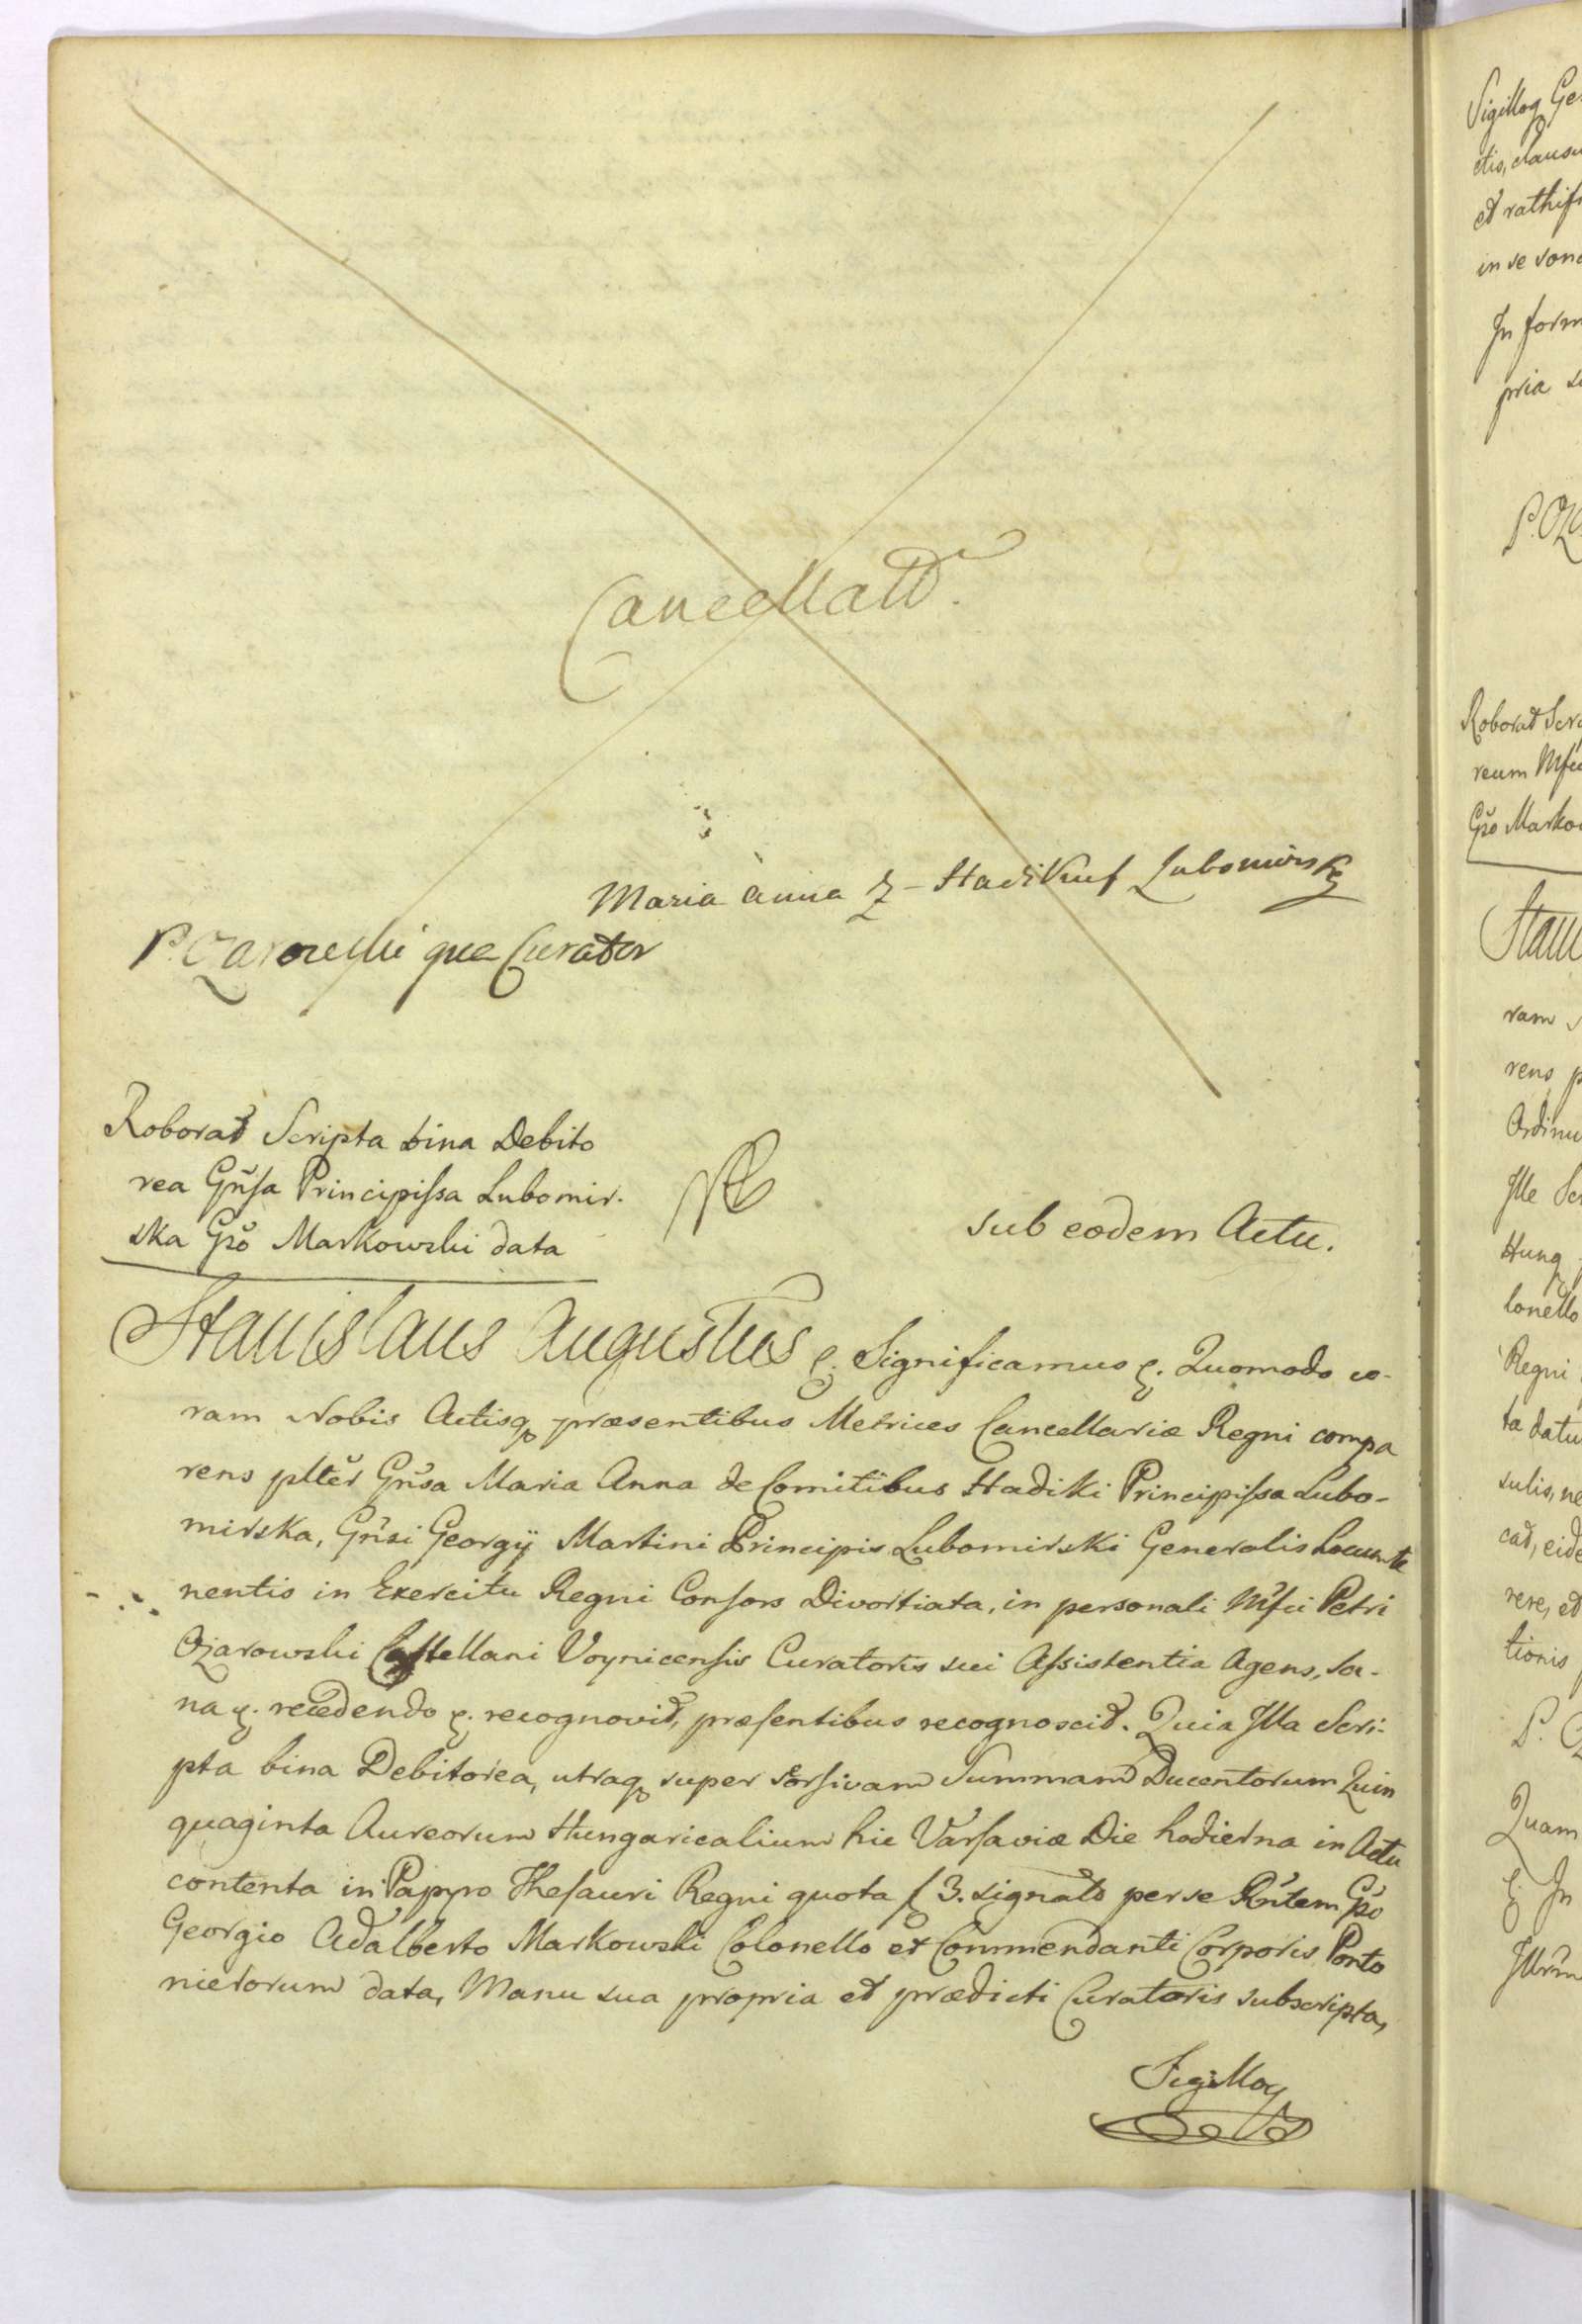 Cancellatd.
Maria anna Z Hadikuf Lubomirska
P. Ozarowski qua Curator
Roborat Scripta bina Debito
rea Gñsa Principissa Lubomir-
ska Gño Markowski data
sub eodem Actu.
Stanislaus Augustus &. Significamus &. Quomodo co-
ram Nobis Actisq præsentibus Metrices Cancellariæ Regni compa
rens plter Gñsa Maria Anna de Comitibus Hadiki Principissa Lubo-
mirska, Gñsi Georgij Martini Principis Lubomirski Generalis Locumte
nentis in Exercitu Regni Consors Divortiata, in personali Mfci Petri
Ozarowski Castellani Voynicensis Curatoris sui Assistentia Agens, sa-
na &. recedendo &. recognovit, præsentibus recognoscit. Quia Illa Scri-
pta bina Debitorea, utraq super sorsivam Summam Ducentorum Quin
quaginta Aureorum Hungaricalium hic Varsaviæ Die hodierna in Actu
contenta in Pappro Thesauri Regni quota f 3. signato per se Rñtem Gño
Georgio Adalberto Markowski Colonello et Commendanti Corporis Ponto
nierorum data, Manu sua propria et prædicti Curatoris subscripta,
Sigilloq
Sigilloq Ge
ctis, clausu
et rathifi
in se
In form
pria
P. Oz
Roborat Scr
reum Mfci
Gño Marko
Stani
ram
rens p
Ordinu
Ille Scr
Hung
lonello
Regni
ta datu
sulis, ne
cat, eide
rere, et
tionis
P.
Quam
&. In